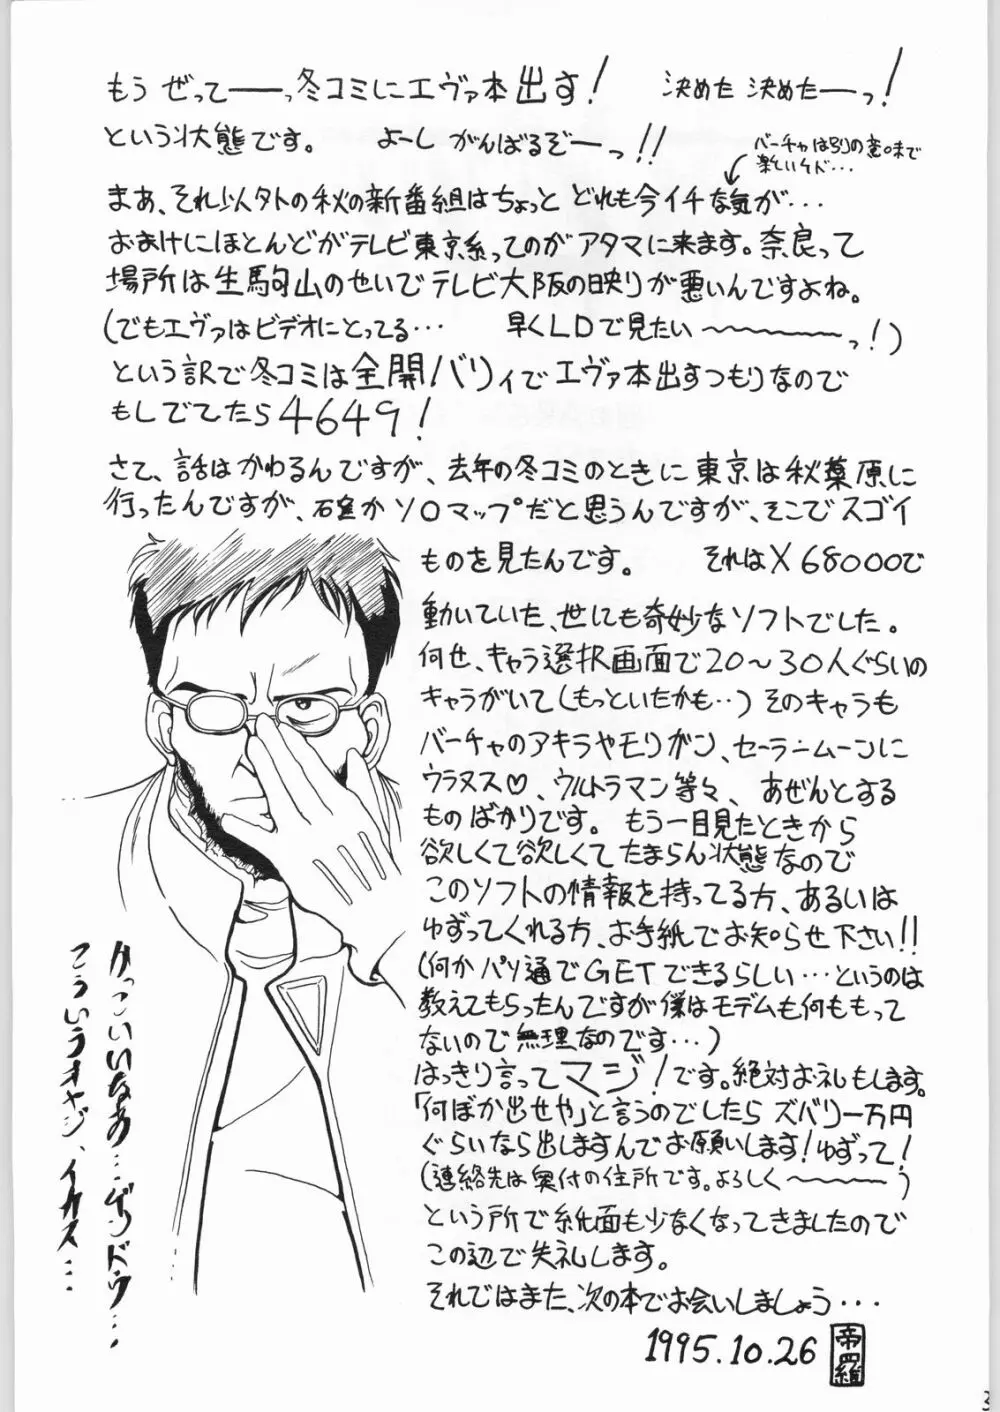 もう ぜってーーっ冬コミにエヴァ本出す! 決めた 決めたーっ!
という状態です。 よーし がんばるぞーっ!!
バーチャは別の意味で
楽しいケド・・・
まあ、それ以外の秋の新番組はちょっと どれも今イチな気が・・・
おまけにほとんどがテレビ東京系ってのがアタマに来ます。奈良って
場所は生駒山のせいでテレビ大阪の映りが悪いんですよね。
(でもエヴァはビデオにとってる・・・ 早くLDで見たい〜〜〜〜っ!)
という訳で冬コミは全開バリィでエヴァ本出すつもりなので
もしでてたら4649!
さて、話はかわるんですが、去年の冬コミのときに東京は秋葉原に
行ったんですが、確かソロマップだと思うんですが、そこでスゴイ
ものを見たんです。 それはX68000で
動いていた、世にも奇妙なソフトでした。
何せ、キャラ選択画面で20〜30人ぐらいの
キャラがいて(もっといたかも・・)そのキャラも
バーチャのアキラやモリガン、セーラームーンに
ウラヌス♡、ウルトラマン等々、あぜんとする
ものばかりです。 もう一目見たときから
欲しくて欲しくてたまらん状態なので
このソフトの情報を持ってる方、あるいは
ゆずってくれる方、お手紙でお知らせ下さい!!
(何かパソ通でGETできるらしい・・・というのは
教えてもらったんですが僕はモデムも何ももって
ないので無理なのです・・・)
はっきり言ってマジ!です。絶対お礼もします。
「何ぼか出せや」と言うのでしたら ズバリ一万円
ぐらいなら出しますんでお願いします!ゆずって!
(連絡先は奥付の住所です。よろしく〜〜〜〜)
という所で紙面も少なくなってきましたので
この辺で失礼します。
それではまた、次の本でお会いしましょう・・・
1995.10.26 帝羅
かっこいいなあ・・・ゲンドウ・・・
こういうオヤジ、イカス・・・
3